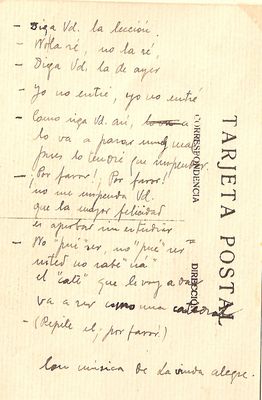 - Diga Vd. la lección.
- No la sé, no la sé
- Diga Vd. la de ayer
- Yo no entré, yo no entré
- Como siga Vd. así,
lo va a pasar muy mal
pues lo tendré que suspender
- ¡Por favor!, ¡Por favor!
no me suspenda Vd.
que la mayor felicidad
es aprobar sin estudiar
- No "pué" ser, no "pué" ser
usted no sabe "ná"
el "cate" que le voy a dar
va a ser una
- (Repite el, por favor!)
Con música de La viuda alegre.
TARJETA POSTAL
CORRESPONDENCIA
DIRECCIÓN